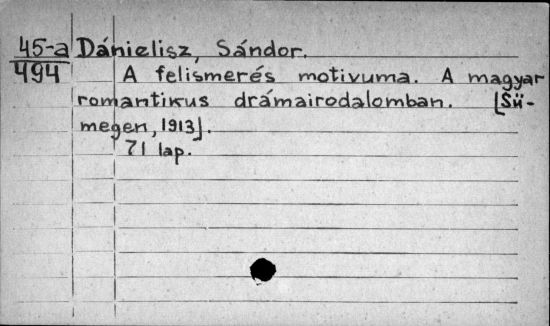 45-a Dánielisz, Sándor.
494 A felismerés motivuma. A magyar
romantikus drámairodalomban. [Sü-
megen, 1913].
71 lap.